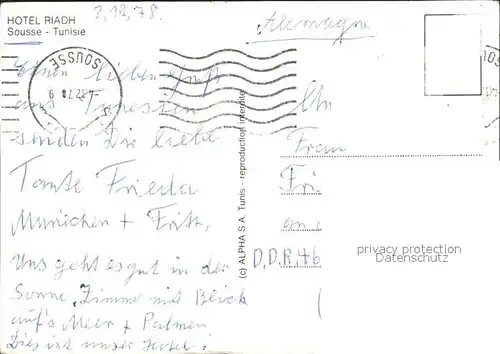 HOTEL RIADH
Sousse - Tunisie
3.12.78.
Allemagne
SOUSSE
Einen lieben Gruß
aus Tunesien
senden Dir liebe
Tante Frieda
+ Fritz,
Uns geht es gut in der
Sonne, Zimmer mit Blick
auf's Meer + Palmen
Dies ist unser Hotel!
(c) ALPHA S.A. Tunis - reproduction interdite
An
Frau
Fri
D.D.R.
privacy protection
Datenschutz